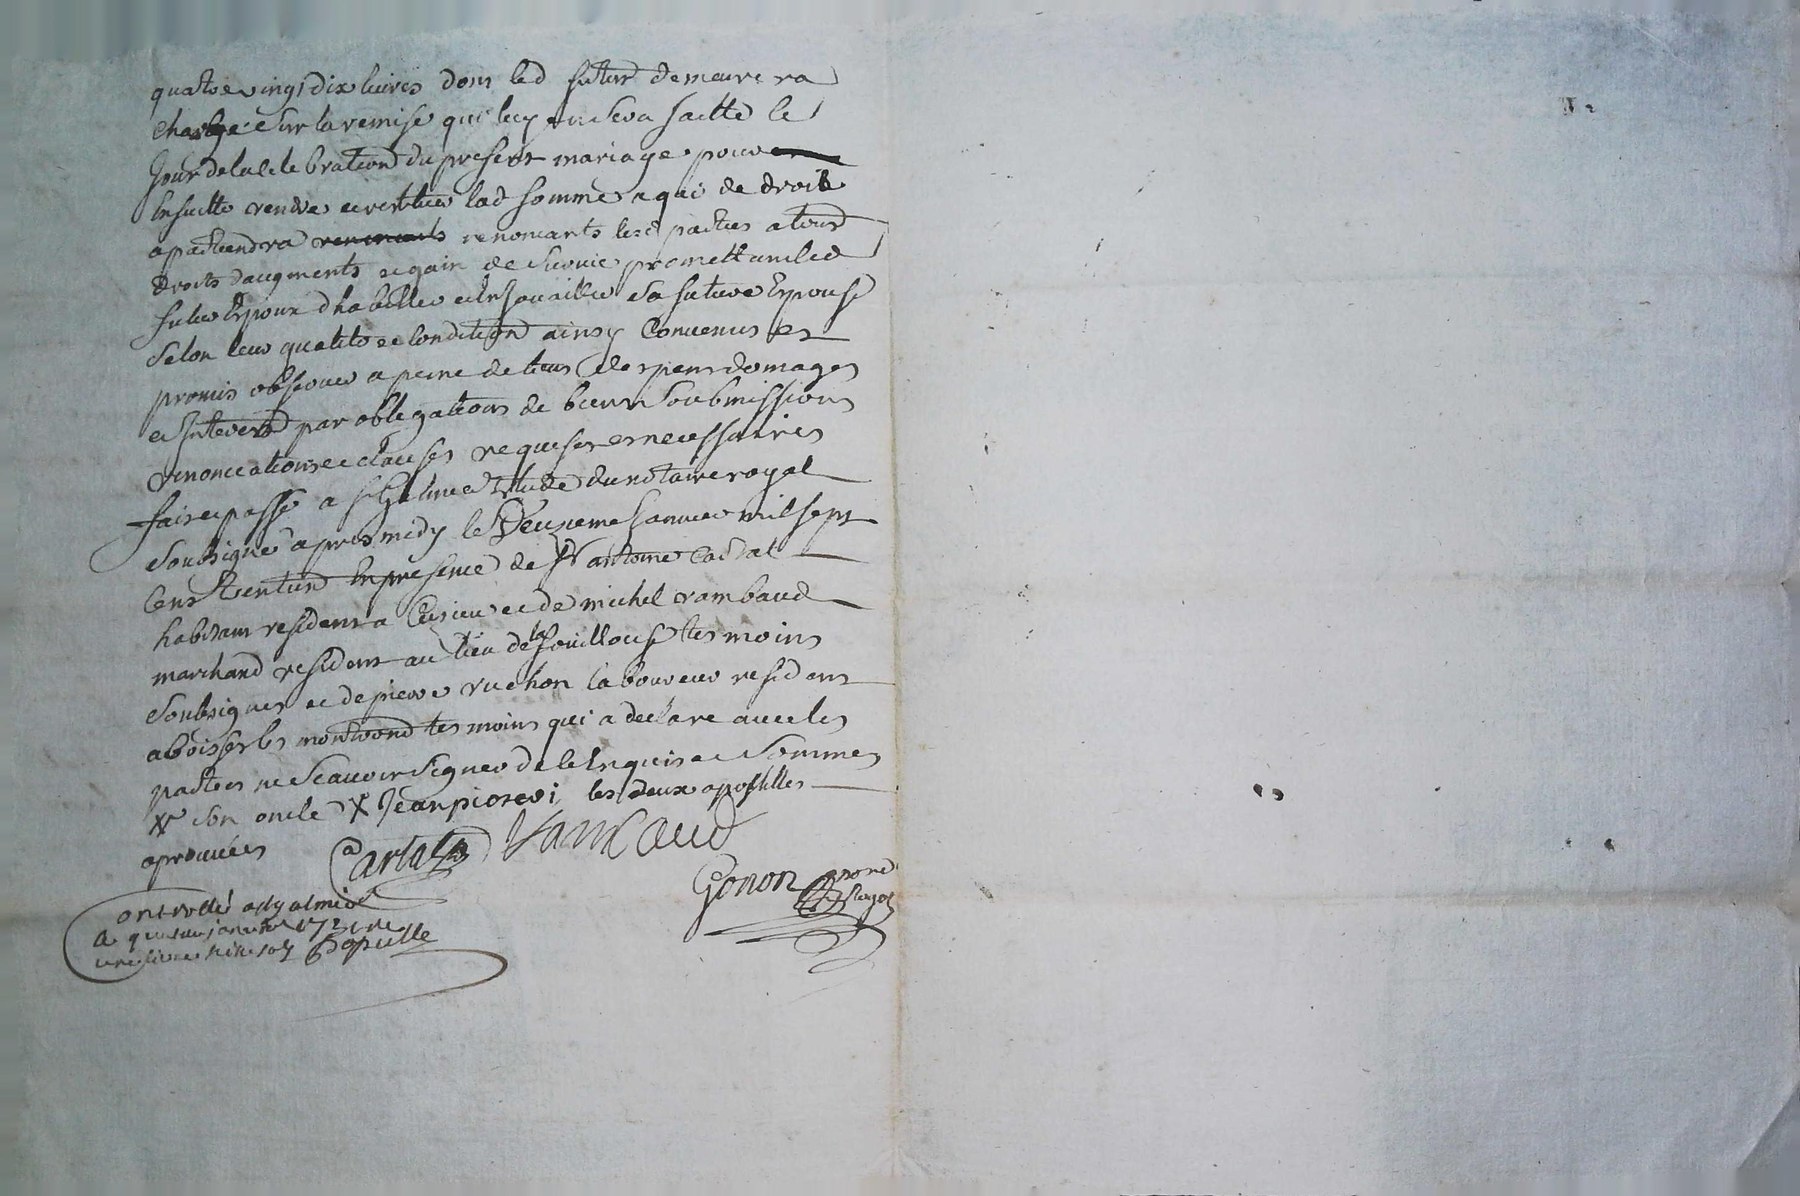 quatre vingt dix livres dont led futur demeurera
chargé sur la remise qui luy en sera faitte le
Jour de la celebration du present mariage pour
Ensuitte rendre et restituer lad somme a qui de droit
apartiendra renoncants lesd parties a tous
droits daugments et gain de survie promettant led
futur Epoux dhabiller et Enjouailler sa future Epouse
selon leur qualité et condition ainsy Convenus et
promis observer a peine de tous despens domages
et Interests par obligations de biens soubmissions
renonciations et clauses requises et necessaires
fait et passé a st Galmier Etude du notaire royal
soubsigné apres midy le Deuxieme Janvier mil sept
Cent trente un En presence de Sr antoine Cartal
habitant resident a Cuzieu et de michel rambaud
marchand resident au lieu de la fouillouse tesmoins
soubsignes et de pierre ruchon laboureur resident
a boisset les montrond tesmoins qui a declaré avec les
parties ne scauoir signer de ce Enquis et sommes
X son oncle X Jean les deux apostilles
aprouvées
Cartal Rambaud
Gonon
Controllé a st galmier
a janvier 1731